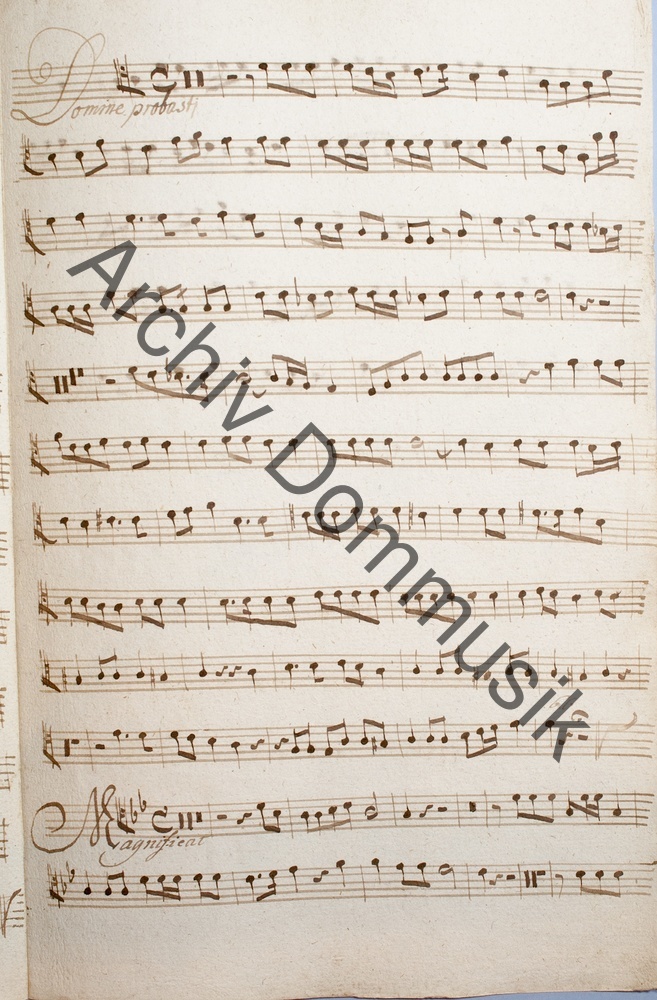 Domine probasti
Archiv Dommusik
Magnificat